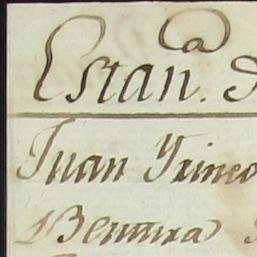 Estan.a
Juan Yrineo
Bentura